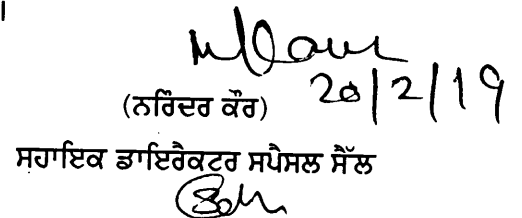 20/2/19
(ਨਰਿੰਦਰ ਕੌਰ)
ਸਹਾਇਕ ਡਾਇਰੈਕਟਰ ਸਪੈਸਲ ਸੈੱਲ